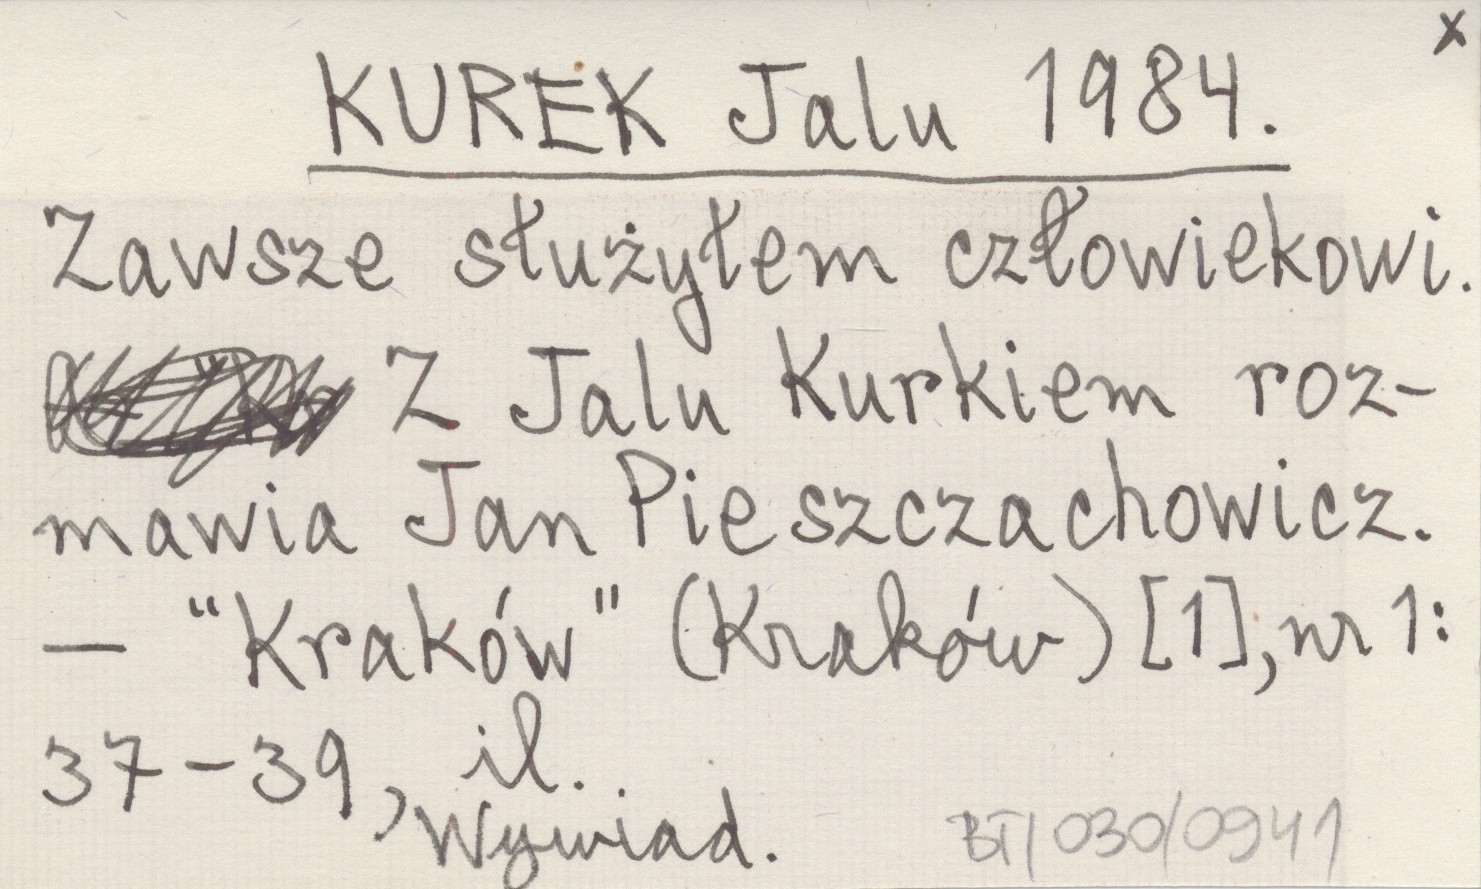 x
KUREK Jalu 1984.
Zawsze służyłem człowiekowi.
Z Jalu Kurkiem roz-
mawia Jan Pieszczachowicz.
— "Kraków" (Kraków) [1], nr 1:
37-39, il.
Wywiad.
BT/030/0941